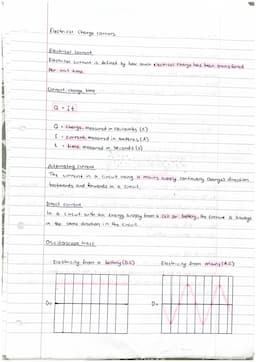 Electrical Charge Currents
Electrical Current
Electrical current is defined by how much electrical charge has been transferred
per unit time.
Current, charge, time
Q = It
Q = charge, measured in coulombs (C)
I = current, measured in amperes (A)
t = time, measured in seconds (s)
Alternating current
The current in a circuit using a mains supply continually changes direction
backwards and forwards in a circuit.
Direct current
In a circuit with an energy supply from a cell or battery, the current is always
in the same direction in the circuit.
Oscilloscope trace
Electricity from a battery (DC)
Electricity from mains (AC)
0=
0=